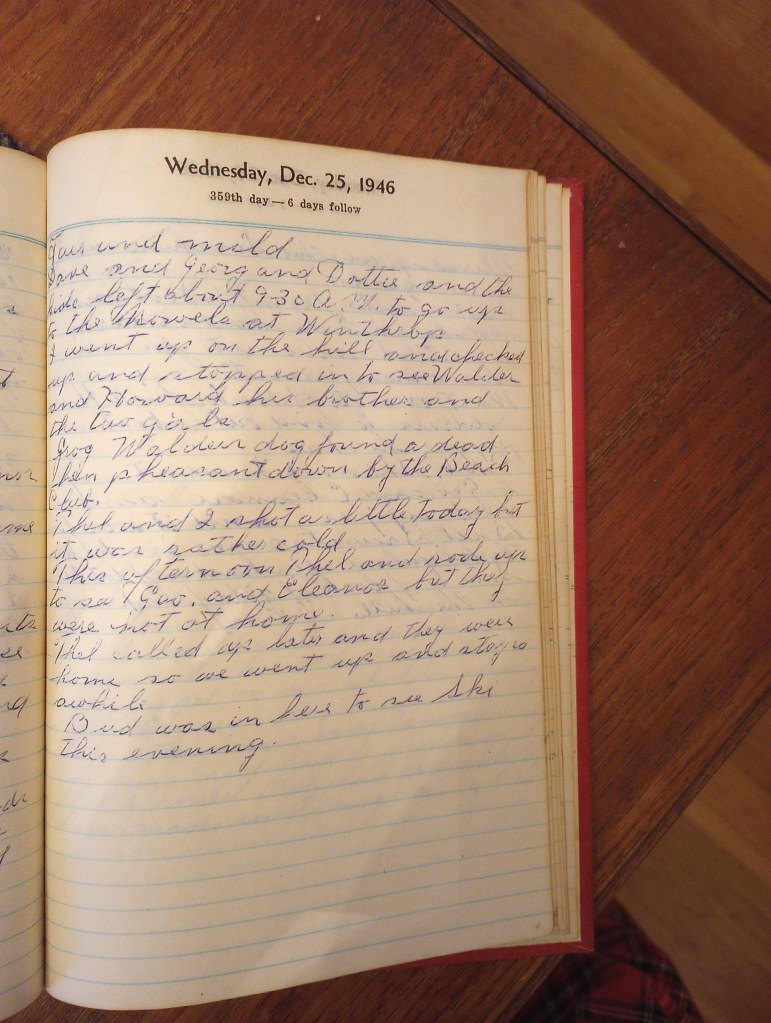 Wednesday, Dec. 25, 1946
359th day — 6 days follow
Fair and mild
Dave and Georg and Dottie and the
kids left about 9-30 A.M. to go up
to the Nowels at Winthrop
I went up on the hill and checked
up and stopped in to see Walden
and Howard his brother and
the two gals
Grog Walden dog found a dead
Hen pheasant down by the Beach
Club.
Thel and I shot a little today but
it was rather cold
This afternoon Thel and rode up
to see Geo. and Eleanor but they
were not at home.
Thel called up later and they were
home so we went up and stayed
awhile
Bud was in here to see Ski
this evening.